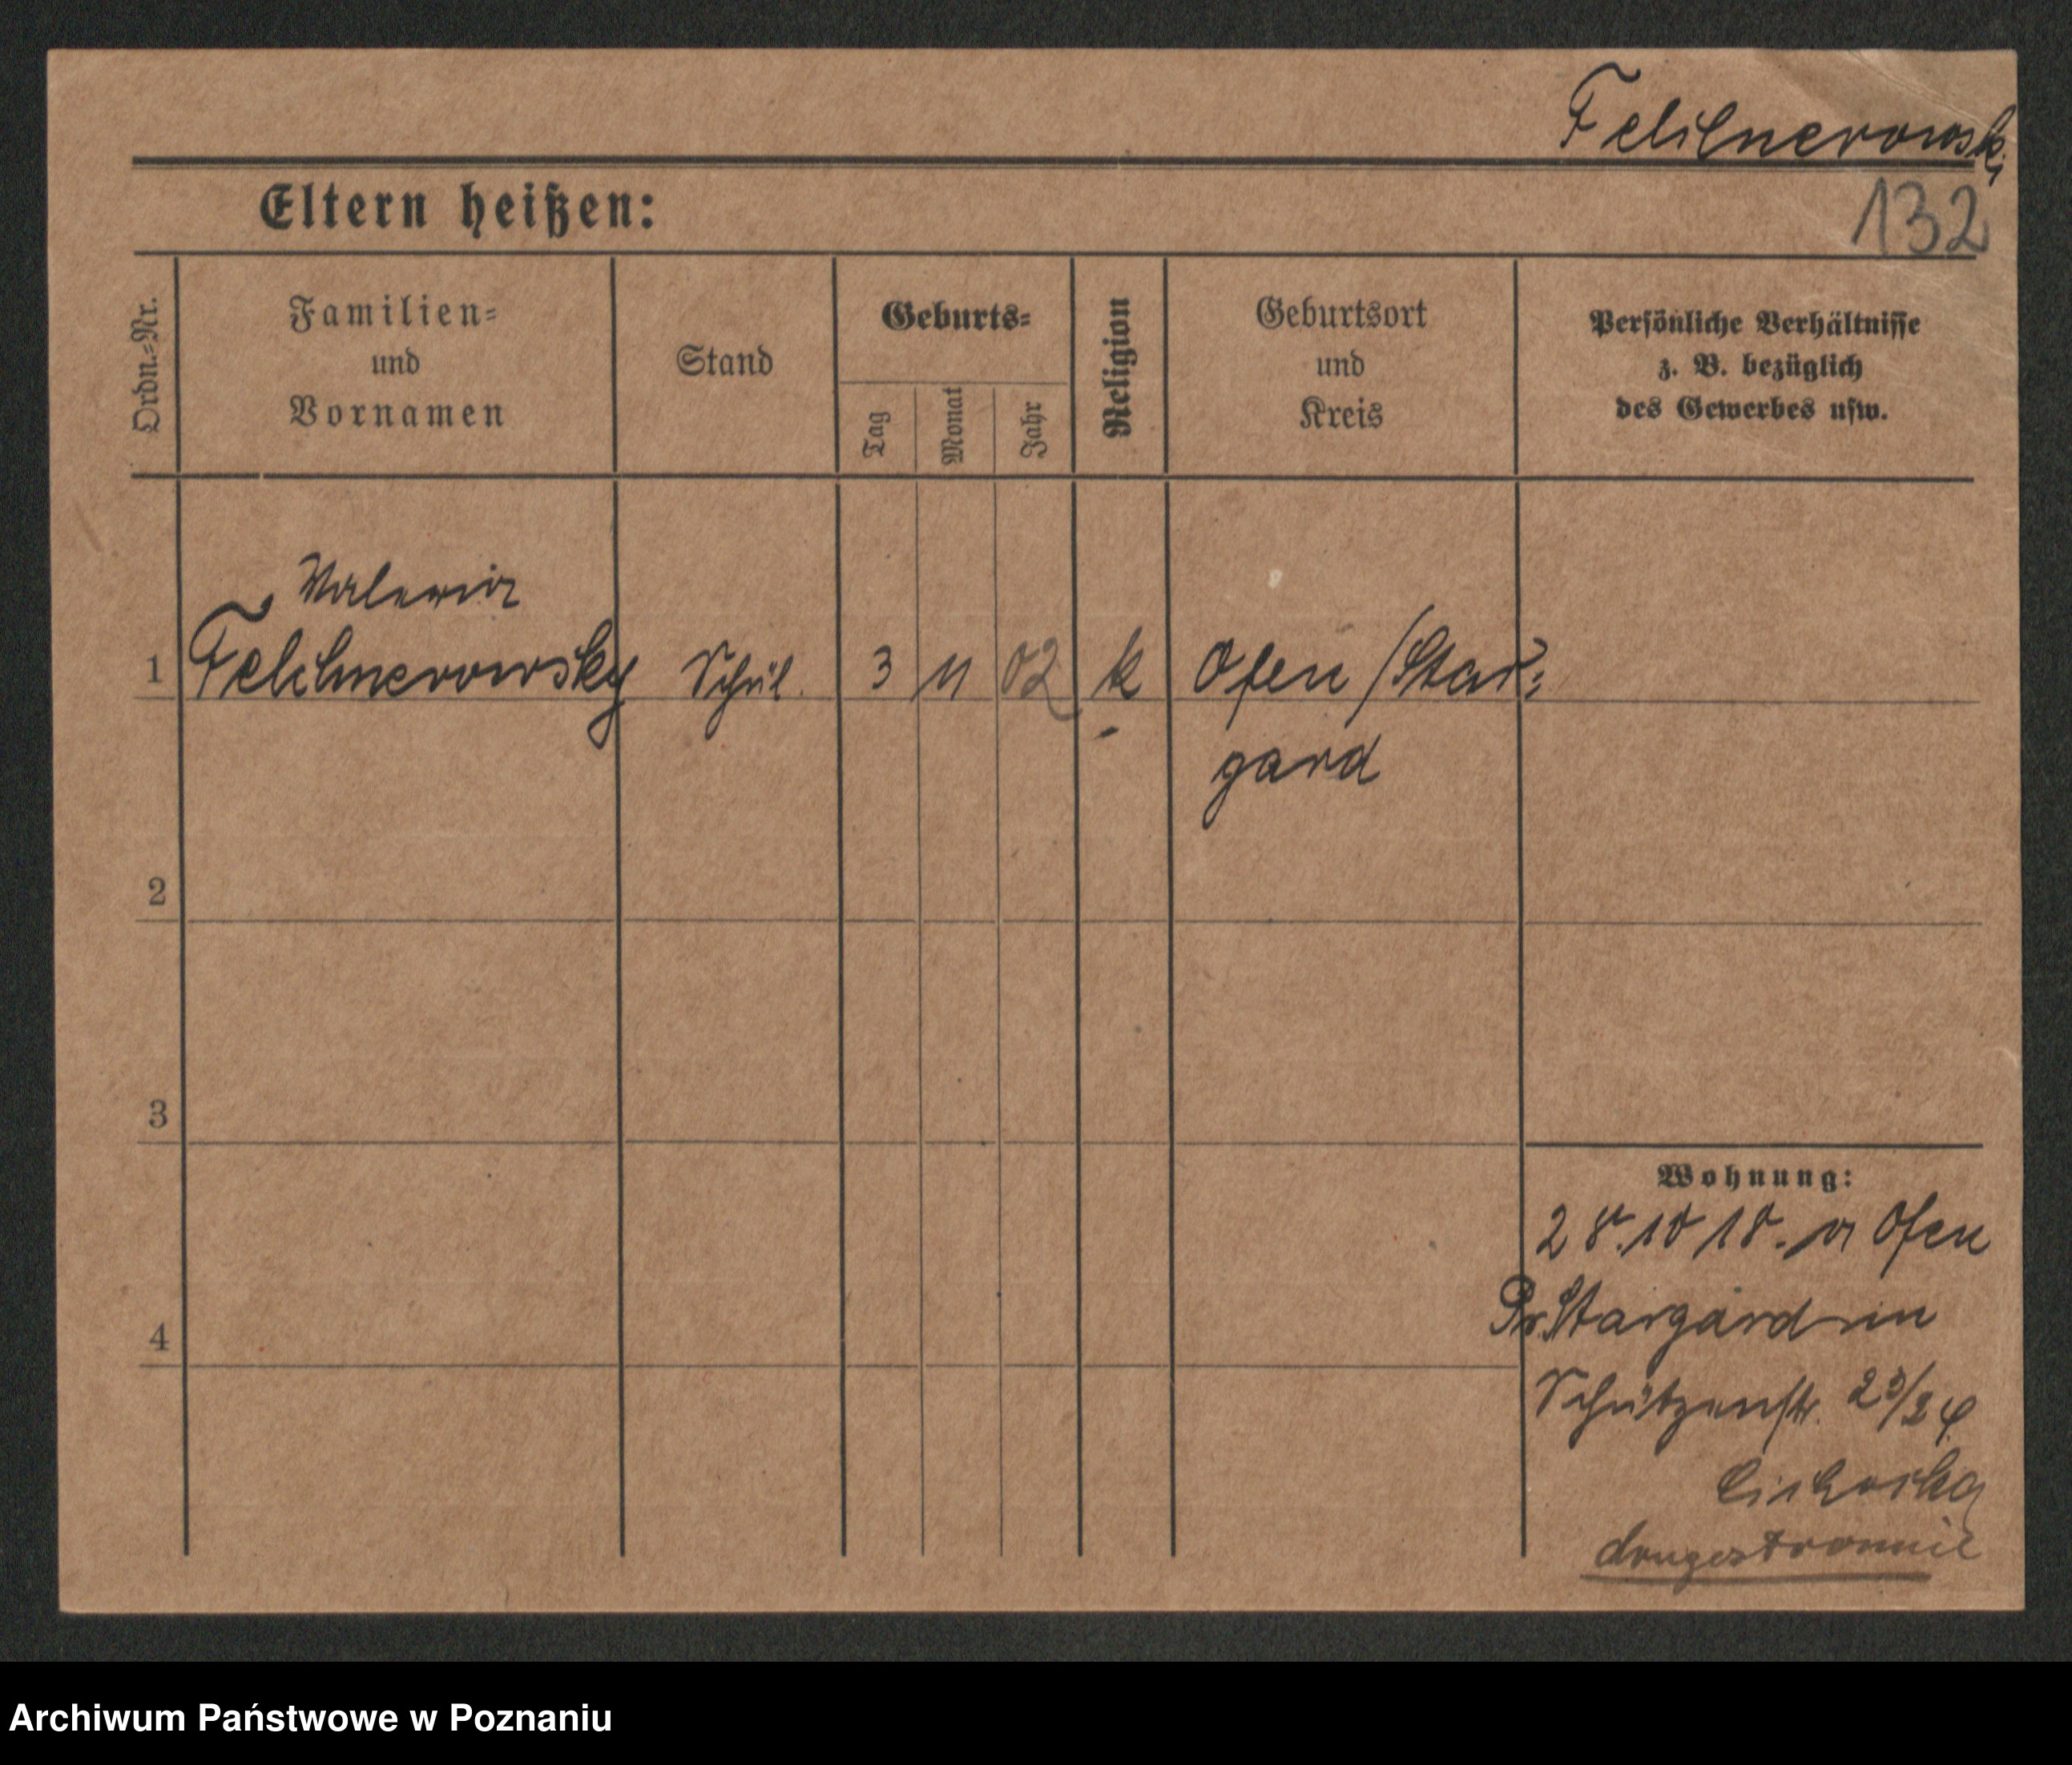 Felchnerowski
Eltern heißen:
132
Ordn.=Nr.
Familien=
und
Vornamen
Stand
Geburts=
Tag
Monat
Jahr
Religion
Geburtsort
und
Kreis
Persönliche Verhältnisse
z. B. bezüglich
des Gewerbes usw.
Valeria
1 Felchnerowsky Schül. 3 11 02 k Ofen /Star=
gard
2
3
4
Wohnung:
28.10 18. v Ofen
Pr. Stargard in
Schützenstr. 23/24
Cichoska
drugostronnie
Archiwum Państwowe w Poznaniu